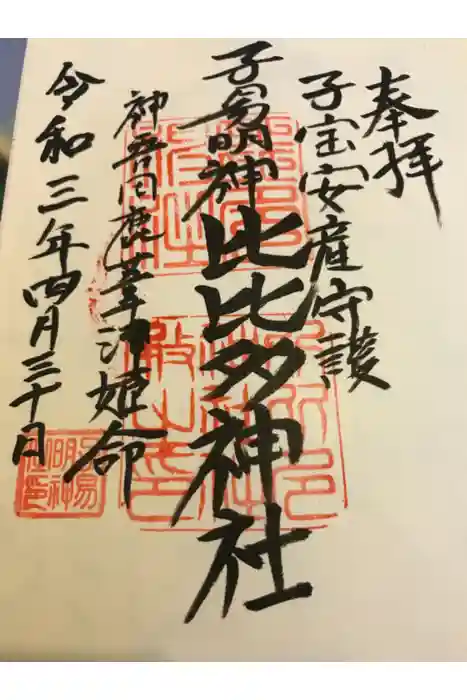 奉拝
子宝安産守護
子易明神比比多神社
神吾田鹿葦津姫命
令和三年四月三十日